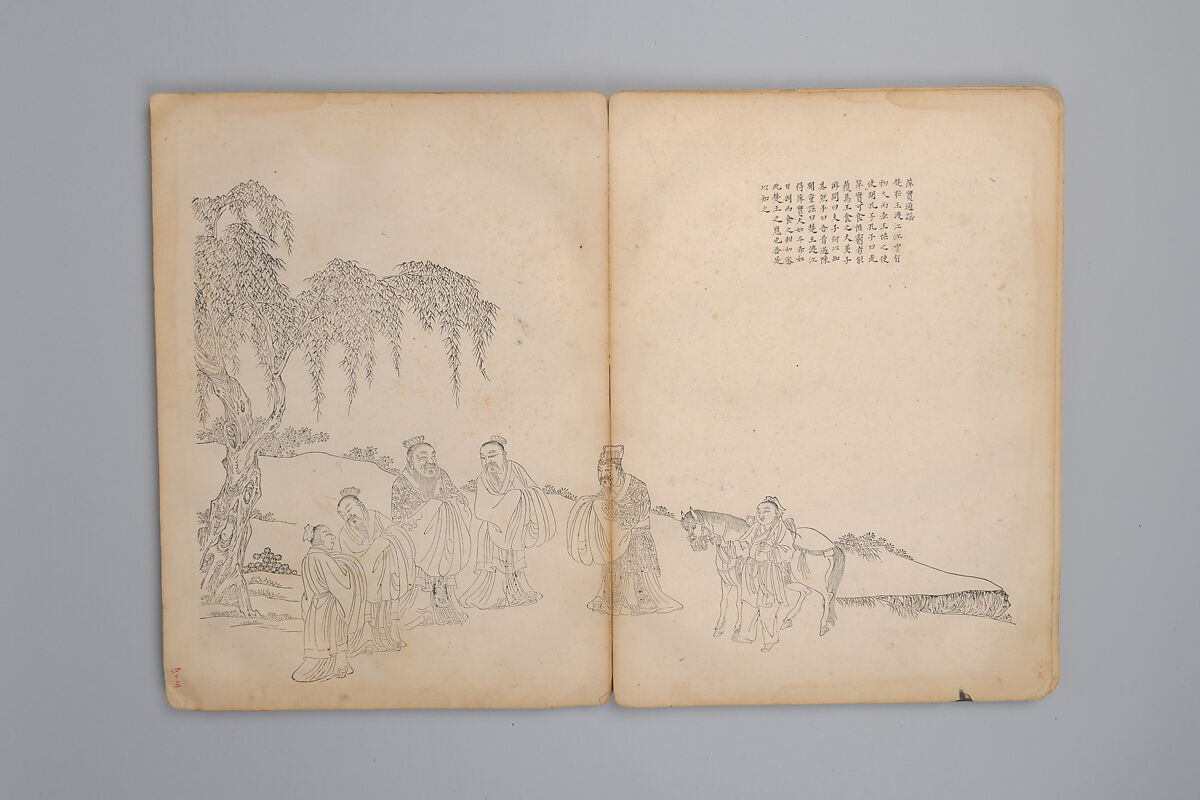 萍實通謡
楚昭王渡江江中有
物大而赤王怪之使
使問孔子孔子曰是
萍實可食惟霸者能
獲焉王食之大美子
游問曰夫子何以知
其然乎曰吾昔過陳
聞童謡曰楚王渡江
得萍實大如斗赤如
日剖而食之甜如蜜
此楚王之應也吾是
以知之
四十三